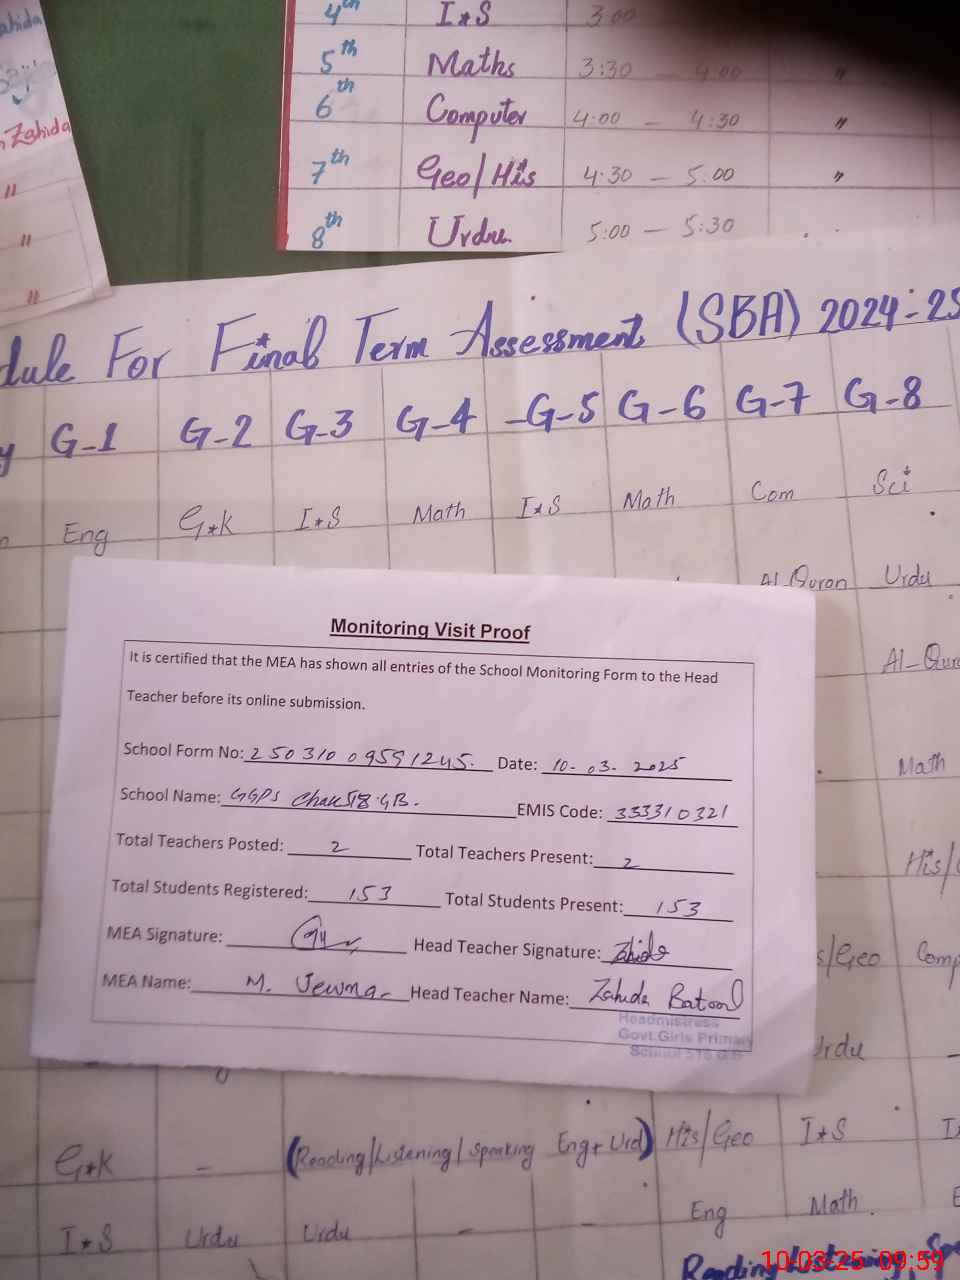 ahida
Zahida
"
"
"
4th I*S 3:00
5th Maths 3:30 — 4:00 "
6th Computer 4:00 — 4:30 "
7th Geo/His 4:30 — 5:00 "
8th Urdu. 5:00 — 5:30
dule For Final Term Assessment (SBA) 2024-25
y G-1 G-2 G-3 G-4 G-5 G-6 G-7 G-8
Eng G*K I*S Math I*S Math Com Sci
Al Quran Urdu
Al-Qur
Math
His/
s/Geo Comp
Urdu —
Monitoring Visit Proof
It is certified that the MEA has shown all entries of the School Monitoring Form to the Head
Teacher before its online submission.
School Form No: 250310 09591245. Date: 10-03-2025
School Name: GGPS Chak 518 GB. EMIS Code: 333310321
Total Teachers Posted: 2 Total Teachers Present: 2
Total Students Registered: 153 Total Students Present: 153
MEA Signature: Head Teacher Signature: Zahida
MEA Name: M. Head Teacher Name: Zahida Batool
Headmistress
Govt.Girls Primary
School 518 G.B
G*K - (Reading/Listening/Speaking Eng+Urd) His/Geo I*S I
I*S Urdu Urdu - - Eng Math. E
Reading Listening Spe
10-03-25 09:59